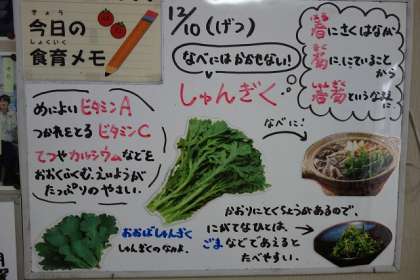 きょう
今日の
しょくいく
食育メモ
12/10(げつ)
なべにはかかせない!
しゅんぎく
春にさくはなが
菊ににていること
から
春菊というなまえに
めによいビタミンA
つかれをとるビタミンC
てつやカルシウムなどを
おおくふくむ、えいようが
たっぷりのやさい。
なべに!
おおばしゅんぎく
しゅんぎくのなかま。
かおりにとくちょうがあるので、
にがてなひとは、
ごまなどであえると
たべやすい。